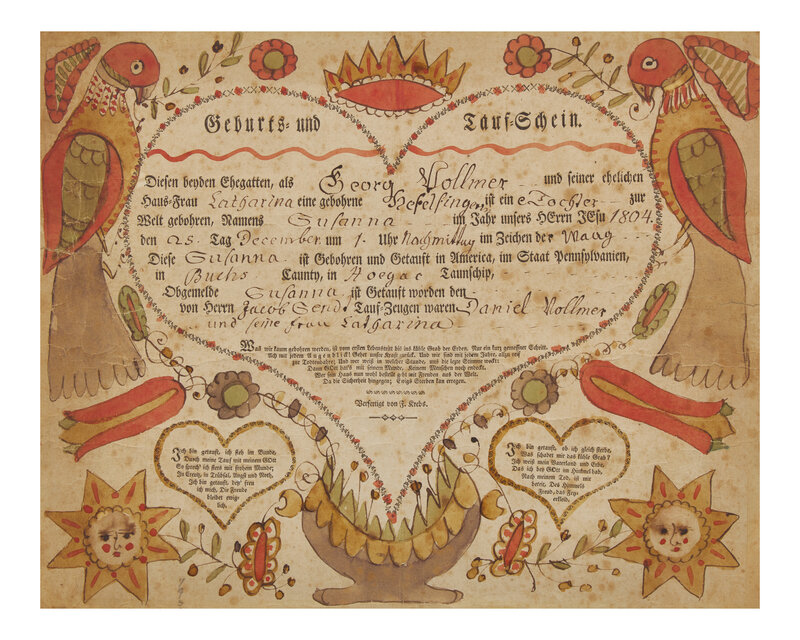 Geburts- und Tauf-Schein.
Diesen beyden Ehegatten, als Georg Vollmer und seiner ehelichen
Haus-Frau Catharina eine gebohrne Hefelfingen ist ein e Tochter zur
Welt gebohren, Namens Susanna im Jahr unsers HErrn JEsu 1804.
den 25. Tag December um 1. Uhr Nachmittag im Zeichen der Waag
Diese Susanna ist Gebohren und Getauft in America, im Staat Pennsylvanien,
in Buchs Caunty, in Taunschip,
Obgemelde Susanna ist Getauft worden den
von Herrn Jacob Tauf-Zeugen waren Daniel Vollmer
und seine frau Catharina
Wann wir kaum gebohren werden, ist vom ersten Lebenstritt bis ins kühle Grab der Erden, Nur ein kurz gemeßner Schritt.
Ach mit jedem Augenblick! Gehet unsre Kraft zurück. Und wir sind mit jedem Jahre, allzu reif
zur Todtenbahre; Und wer weiß in welcher Stunde, uns die letzte Stimme weckt:
Dann GOtt hat's mit seinem Munde, Keinem Menschen noch endeckt.
Wer sein Haus nun wohl bestellt geht mit Freuden aus der Welt.
Da die Sicherheit hingegen; Ewigs Sterben kan erregen.
Verfertigt von F. Krebs.
Ich bin getauft, ich steh im Bunde,
Durch meine Tauf mit meinem GOtt
So sprech' ich stets mit frohem Munde;
In Creutz, in Trübsal, Angst und Noth,
Ich bin getauft, deß' freu
ich mich, Die Freude
bleibet ewig-
lich.
Ich bin getauft, ob ich gleich sterbe,
Was schadet mir das kühle Grab?
Ich weiß mein Vaterland und Erbe,
Das ich bey GOtt im Himmel hab,
Nach meinem Tod, ist mir
bereit, Des Himmels
Freud, das Feyer-
kleid.